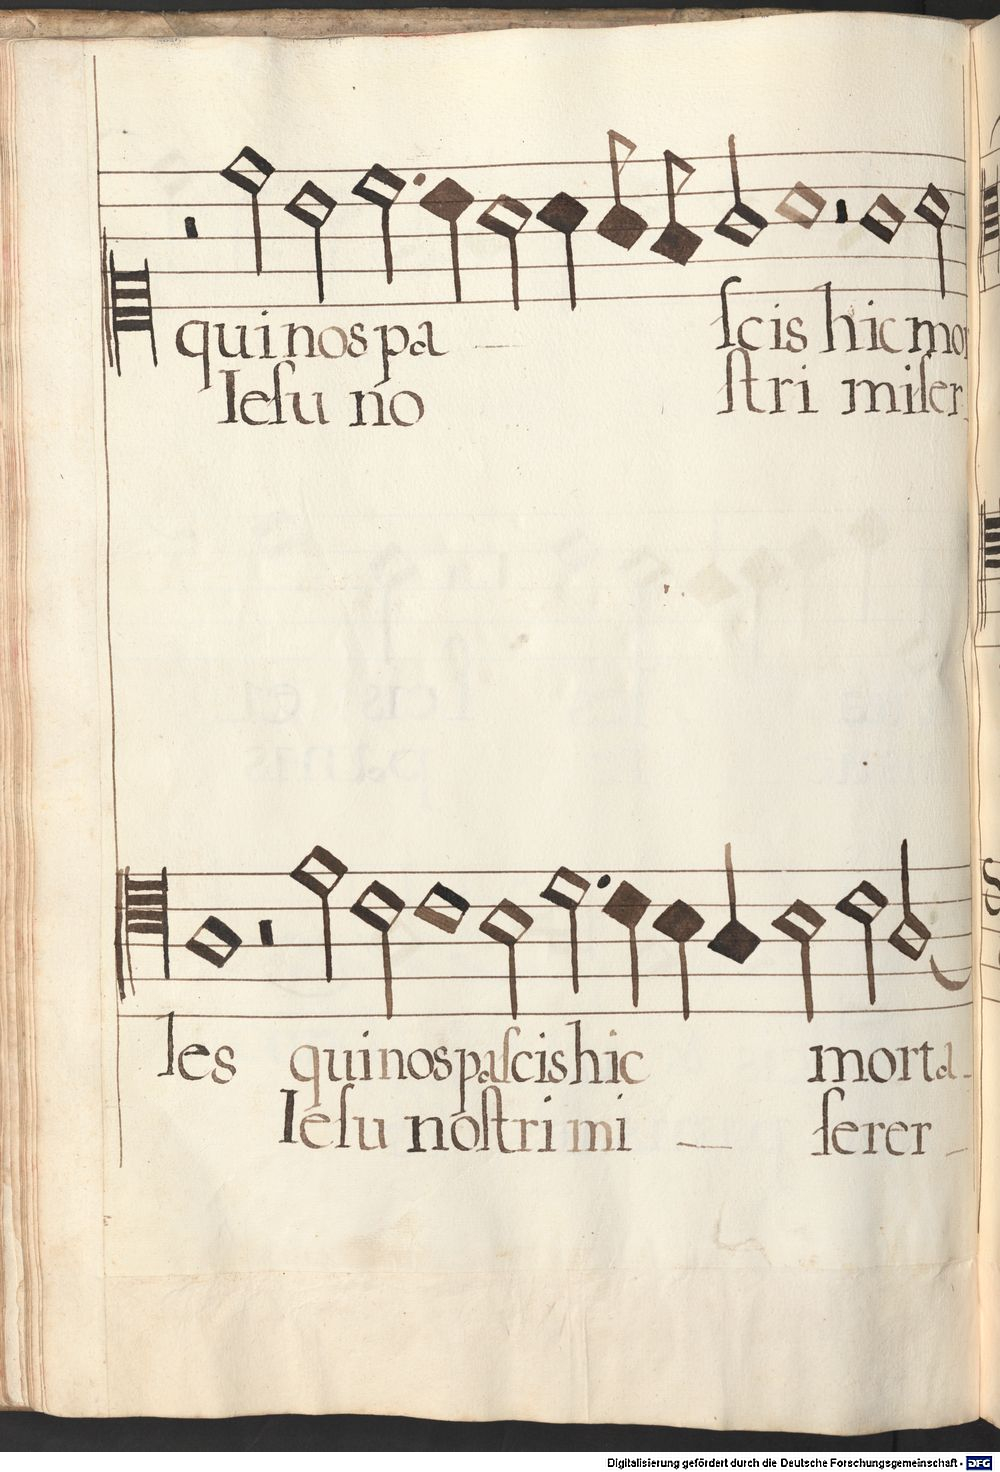 qui nos pa - ſcis hic mor
Ieſu no ſtri miſer
les qui nos paſcis hic morta -
Ieſu noſtri mi - ſerer -
Digitalisierung gefördert durch die Deutsche Forschungsgemeinschaft - DFG